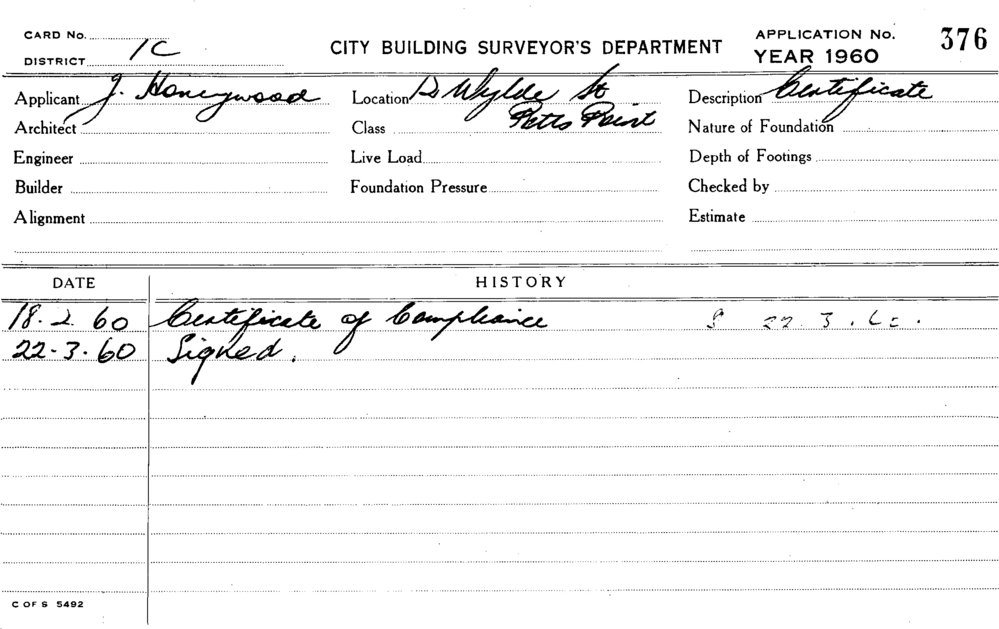 CARD No.
DISTRICT 1C
CITY BUILDING SURVEYOR'S DEPARTMENT
APPLICATION No. 376
YEAR 1960
Applicant J. Honeywood Location Wylde St Description Certificate
Architect Class Potts Point Nature of Foundation
Engineer Live Load Depth of Footings
Builder Foundation Pressure Checked by
Alignment Estimate
DATE HISTORY
18. 2. 60 Certificate of Compliance 22. 3. 60.
22. 3. 60 Signed.
C OF S 5492